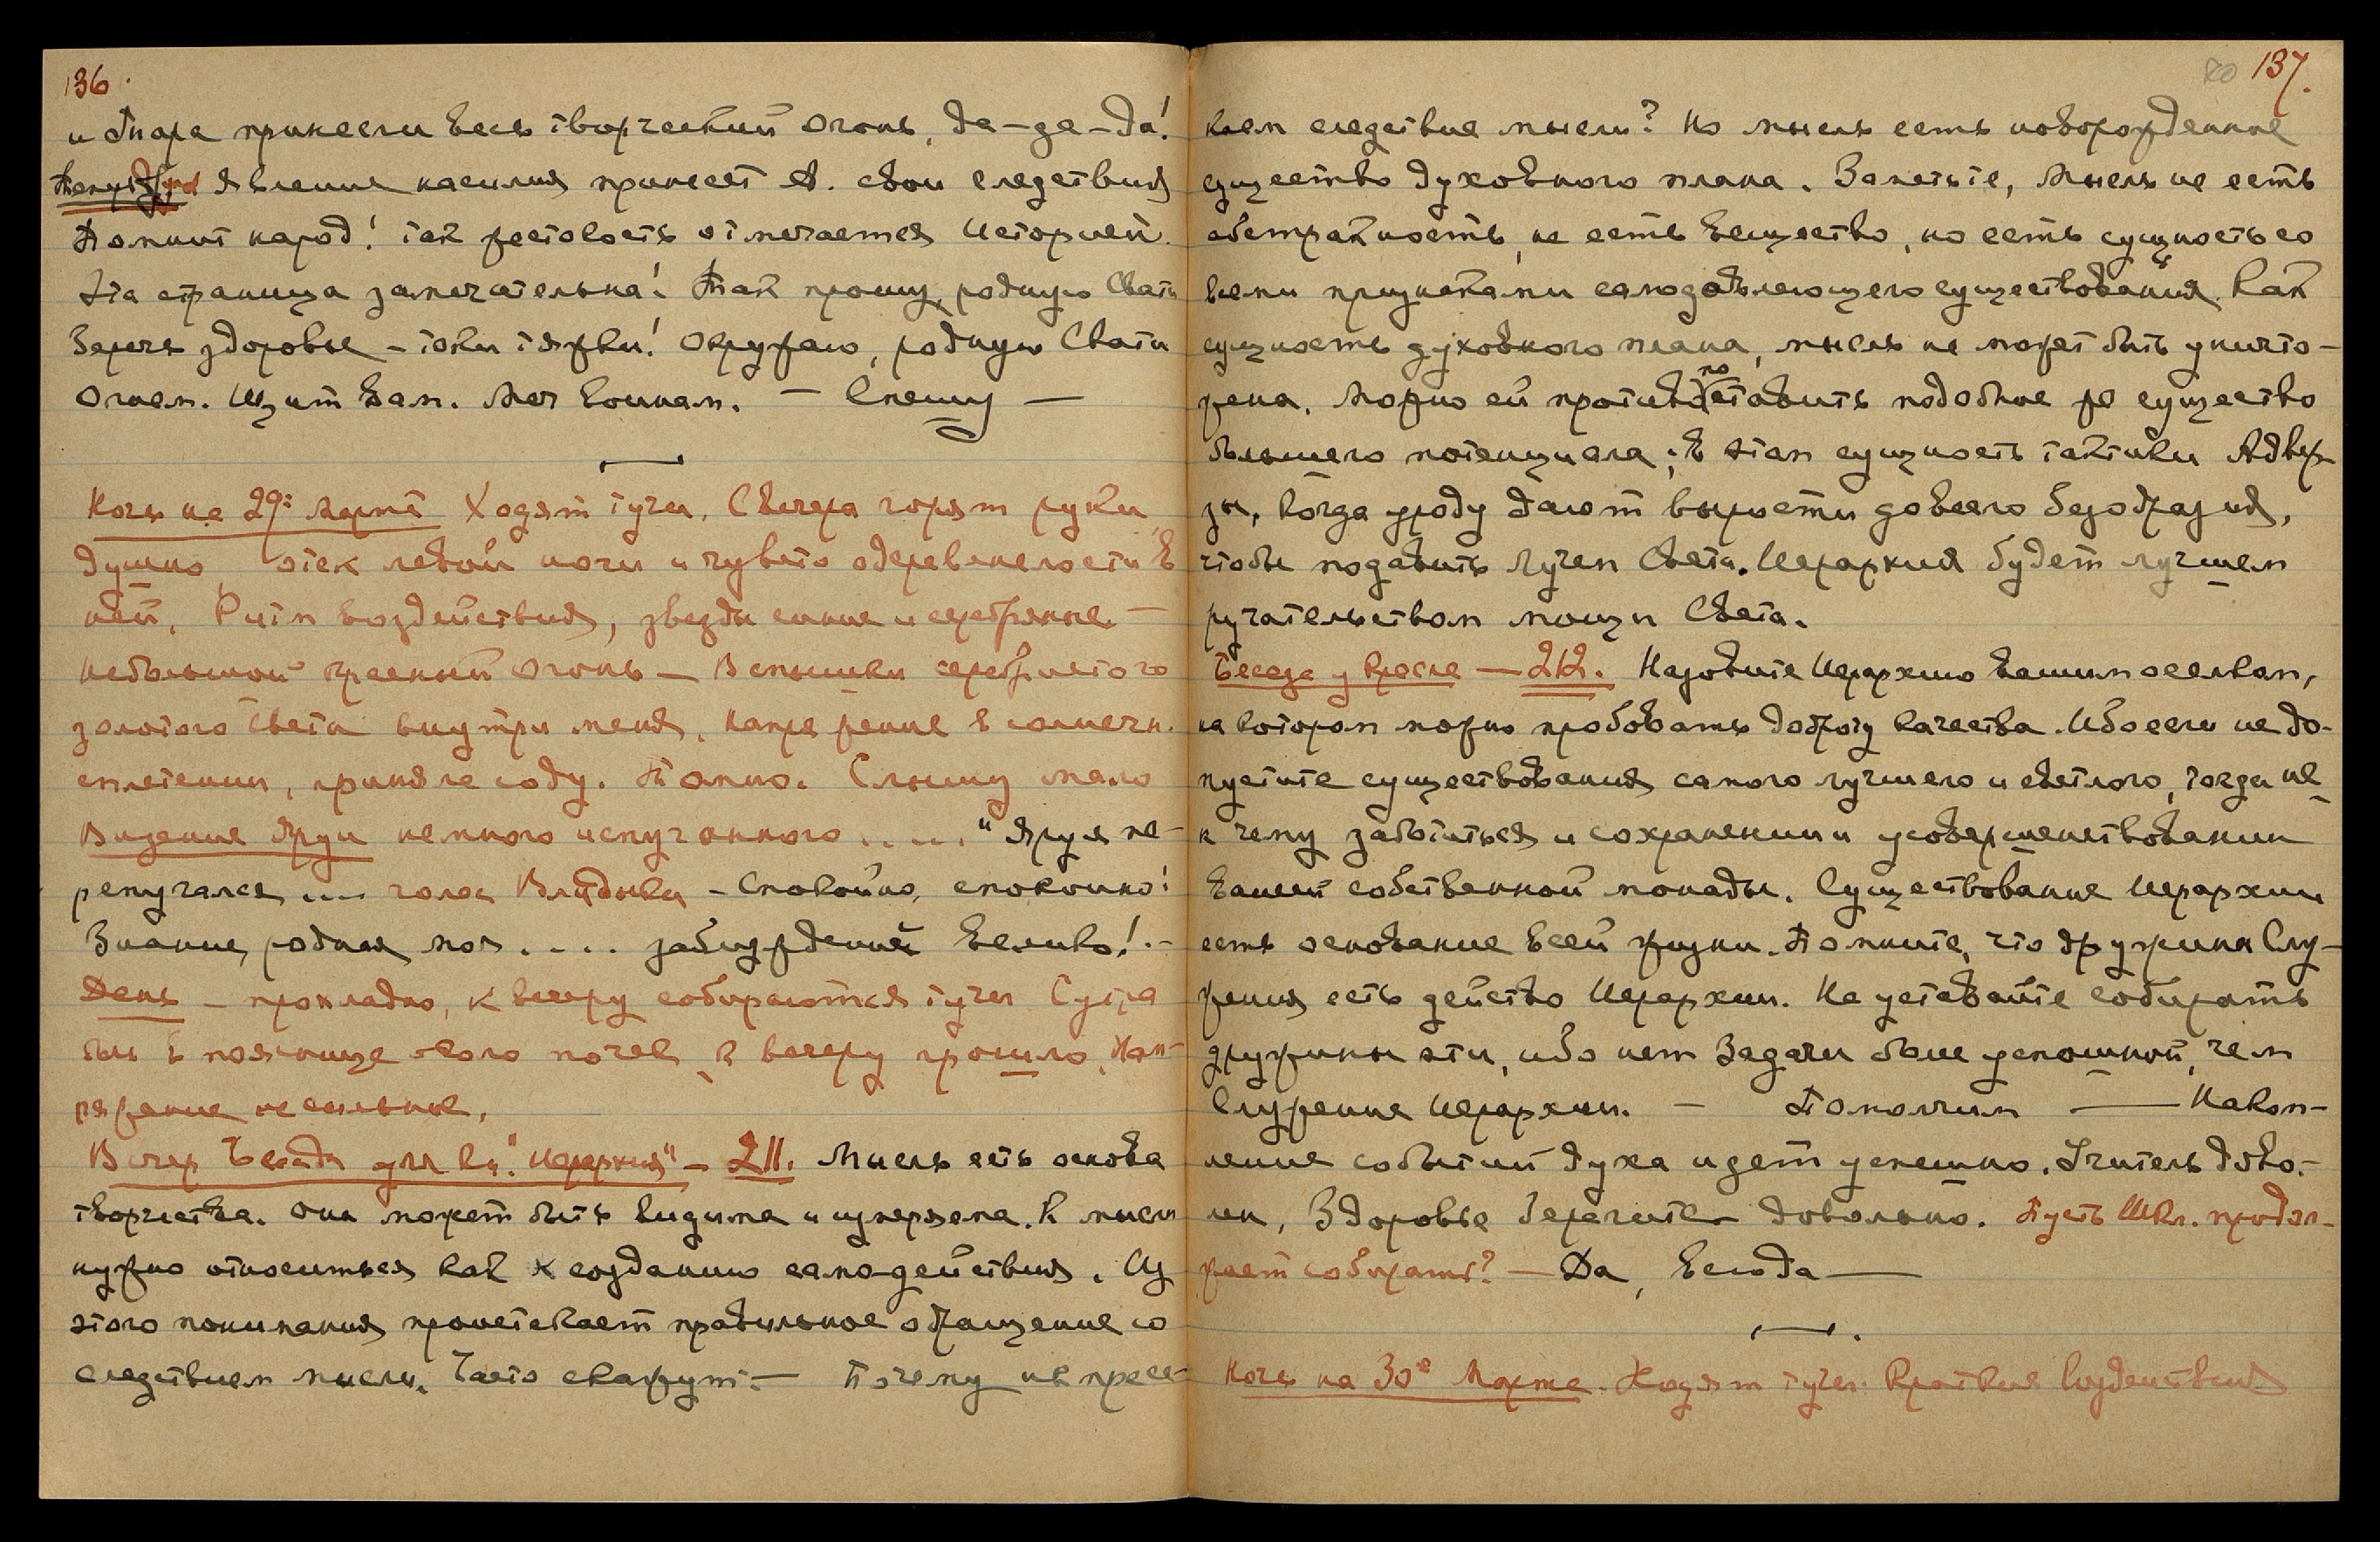 136.
и Тара принесли весь творческий огонь. Да-да-да!
явление насилия принесет А. свои следствия
Помнит народ! так жестокость отмечается Историей.
Эта страница замечательна! Так прошу, родную Свати
Беречь здоровье – токи тяжки! Окружаю, родную Свати
Огнем. Щит вам. Меч воинам. – Спешу –
Ночь на 29: Марта Ходят тучи. С вечера горят руки,
душно, отек левой ноги и чувство одеревенелости в
ней. Ритм воздействия, звезды синие и серебряные. –
Небольшой красный огонь – Вспышки серебристого
золотого Света внутри меня. Напряжение в солнечн.
сплетении, приняла соду. Томно. Слышу мало
Видение Яруи немного испуганного..... "Яруя пе-
репугался .... голос Владыки – Спокойно, спокойно!
Знание, родная моя .... заблуждений велико! –
День – прохладно, к вечеру собираются тучи С утра
боль в пояснице около почек, к вечеру прошло. Нап-
ряжение не сильное.
Вечер Беседа для кн. "Иерархия" – 211. Мысль есть основа
творчества. Она может быть видима и измеряема. К мысли
нужно относиться как к созданию само-действия. Из
этого понимания проистекает правильное обращение со
следствием мысли. Часто скажут: – Почему не пресе-
80 137.
каем следствие мысли? Но мысль есть новорожденное
существо духовного плана. Заметьте, мысль не есть
абстрактность, не есть вещество, но есть сущность со
всеми признаками самодовлеющего существования. Как
сущность духовного плана, мысль не может быть уничто-
жена. Можно ей противопоставить подобное же существо
большего потенциала; в этом сущность тактики Адвер-
зы, когда уроду дают вырасти до всего безобразия,
чтобы подавить лучем Света. Иерархия будет лучшем
ручательством мощи Света.
Беседа у кресла – 212. Назовите Иерархию вашим оселком,
на котором можно пробовать доброту качества. Ибо если не до-
пустите существования самого лучшего и светлого, тогда не
к чему заботиться и сохранении и усовершенствовании
вашей собственной монады. Существование Иерархии
есть основание всей жизни. Помните, что дружина Слу-
жения есть действо Иерархии. Не уставайте собирать
дружины эти, ибо нет Задачи более успешной, чем
Служение Иерархии. – Помолчим — Накоп-
ление событий духа идет успешно. Учитель дово-
лен, Здоровье Берегите – довольно. Пусть Шкл. продол-
жает собирать? – Да, Беседа —
Ночь на 30е Марта. Ходят тучи. Краткие воздействия